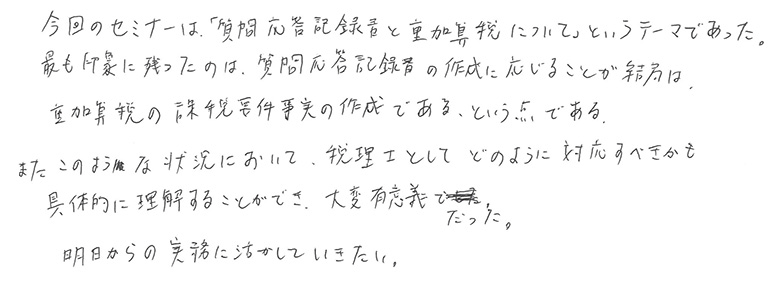 今回のセミナーは、「質問応答記録書と重加算税について」というテーマであった。
最も印象に残ったのは、質問応答記録書の作成に応じることが結局は、
重加算税の課税要件事実の作成である、という点である。
またこのような状況において、税理士としてどのように対応すべきかも
具体的に理解することができ、大変有意義で
だった。
明日からの実務に活かしていきたい。